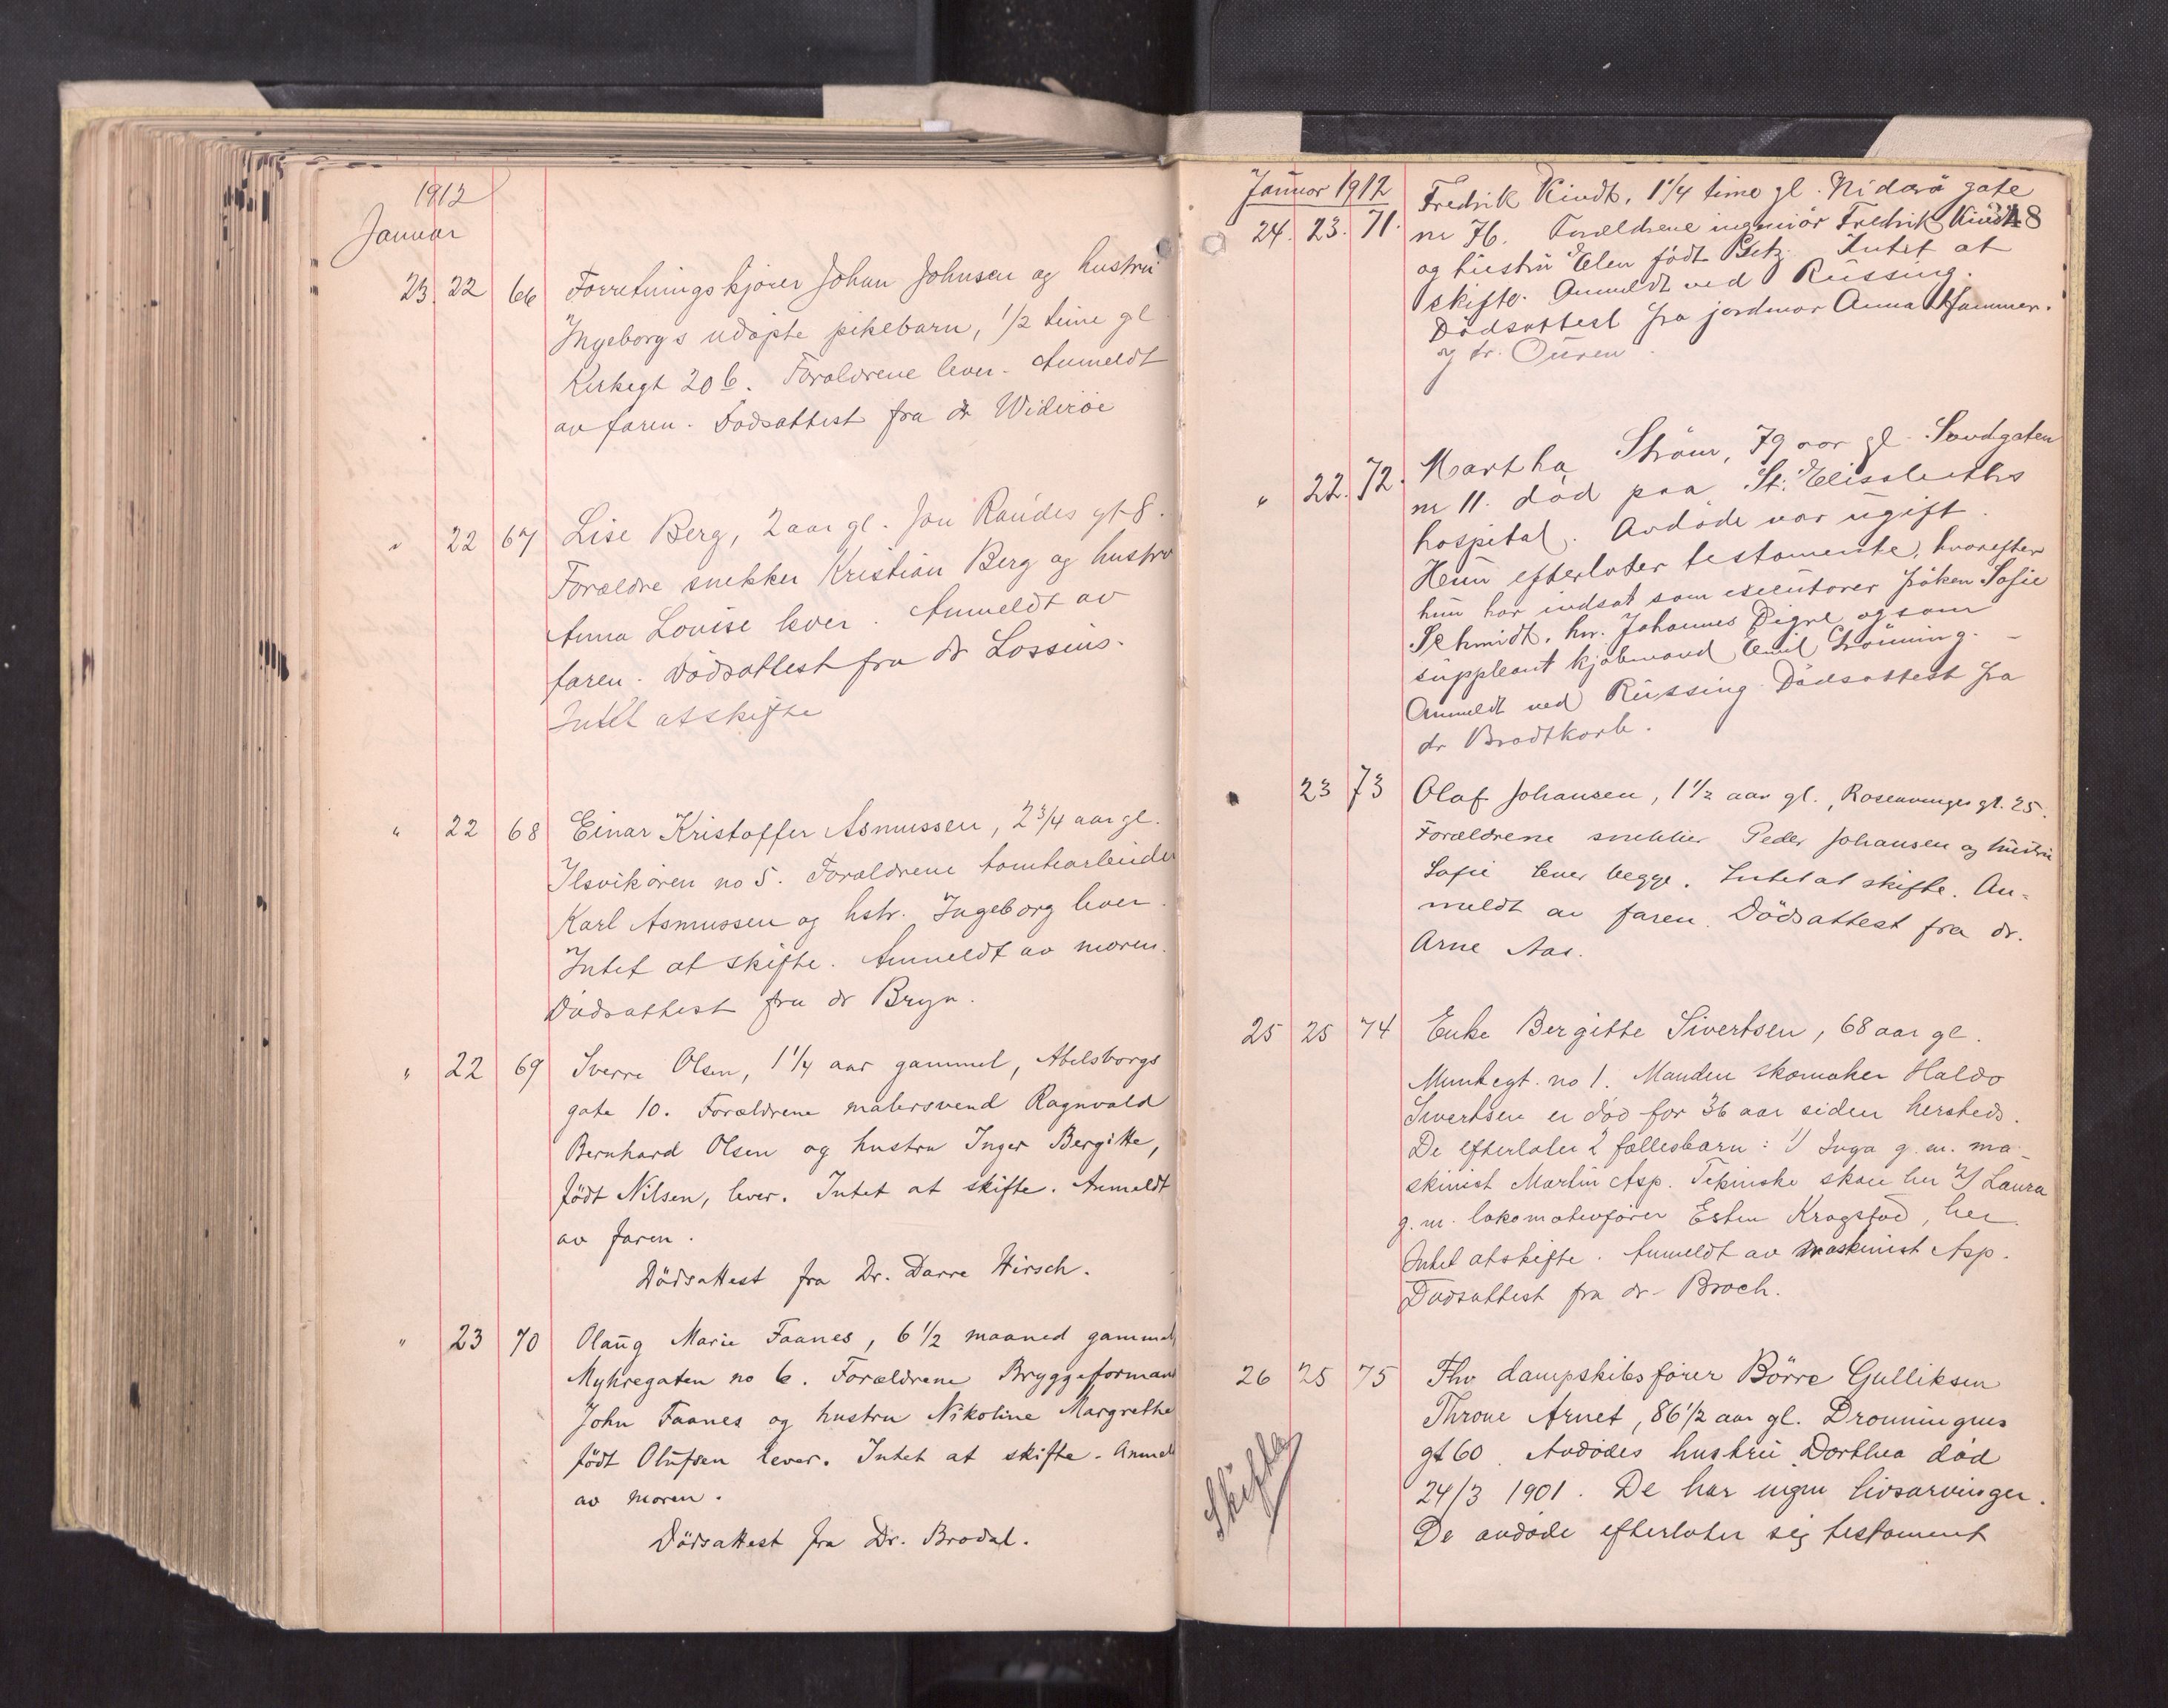 1912
Januar
23. 22 66 Forretningskjører Johan Johnsen og hustru
Ingeborgs udøpte pikebarn, 1/2 time gl
Kirkegt 20 b. Forældrene lever. Anmeldt
av faren. Dødsattest fra dr Widerøe
" 22 67 Lise Berg, 2 aar gl. Jon Raudes gt 8.
Forældre snekker Kristian Berg og hustru
Anna Louise lever. Anmeldt av
faren. Dødsattest fra dr Lossius.
Intet at skifte
" 22 68 Einar Kristoffer Asmussen, 2 3/4 aar gl.
Ilsvikøren no 5. Forældrene tomtearbeider
Karl Asmussen og hstr. Ingeborg lever.
Intet at skifte. Anmeldt av moren.
Dødsattest fra dr Bryn.
" 22 69 Sverre Olsen, 1 1/4 aar gammel, Abelsborgs
gate 10. Forældrene malersvend Ragnvald
Bernhard Olsen og hustru Inger Bergitte,
født Nilsen, lever. Intet at skifte. Anmeldt
av faren.
Dödsattest fra Dr. Darre Hirsch.
" 23 70 Olaŭg Marie Faanes, 6 1/2 maaned gammel,
Myhregaten no 6. Forældrene Bryggeformand
John Faanes og hustru Nikoline Margrethe
født Olŭfsen lever. Intet at skifte. Anmel
av moren.
Dödsattest fra Dr. Brodal.
Januar 1912
248
24. 23. 71. Fredrik Kindt, 1 1/4 time gl. Nidarö gate
nr 76. Forældrene ingeniör Fredrik Kindt
og hustrŭ Elen født Intet at
skifte. Anmeldt ved Rŭssing.
Dödsattest fra jordmor Anna Hammer.
og dr. Oŭren.
" 22. 72. Martha Ström, 79 aar gl. Sandgaten
nr 11. död paa St. Elisabeths
hospital. Avdöde var ŭgift.
Hŭn efterlater testamente, hvorefter
hŭn har indsat som execŭtorer fröken Sofie
Schmidt, hr. Johannes Digre og som
sŭppleant kjöbmand Emil Grönning. -
Anmeldt ved Rŭssing. Dödsattest fra
dr Brodtkorb.
" 23 73 Olaf Johansen, 1 1/2 aar gl., Rosenvinges gt. 25.
Forældrene snekker Peder Johansen og hŭstrŭ
Sofie lever begge. Intet at skifte. An-
meldt av faren. Dödsattest fra dr.
Arne Aas.
25 25 74 Enke Bergitte Sivertsen, 68 aar gl.
Munkegt. no 1. Manden skomaker Haldo
Sivertsen er død for 36 aar siden hersteds.
De efterlater 2 fællesbarn: 1) Inga g. m. ma-
skinist Martin Asp. Tekniske skole her 2) Laura
g. m. lokomotivfører Esten Kragstad, her.
Intet at skifte. Anmeldt av maskinist Asp.
Dødsattest fra dr. Broch.
26 25 75 Fhv dampskibsfører Børre Gulliksen
Throne Arnet, 86 1/2 aar gl. Dronningens
gt 60. Avdødes hustru Dorthea død
24/3 1901. De har ingen livsarvinger.
De avdøde efterlater sig testament
Skifte